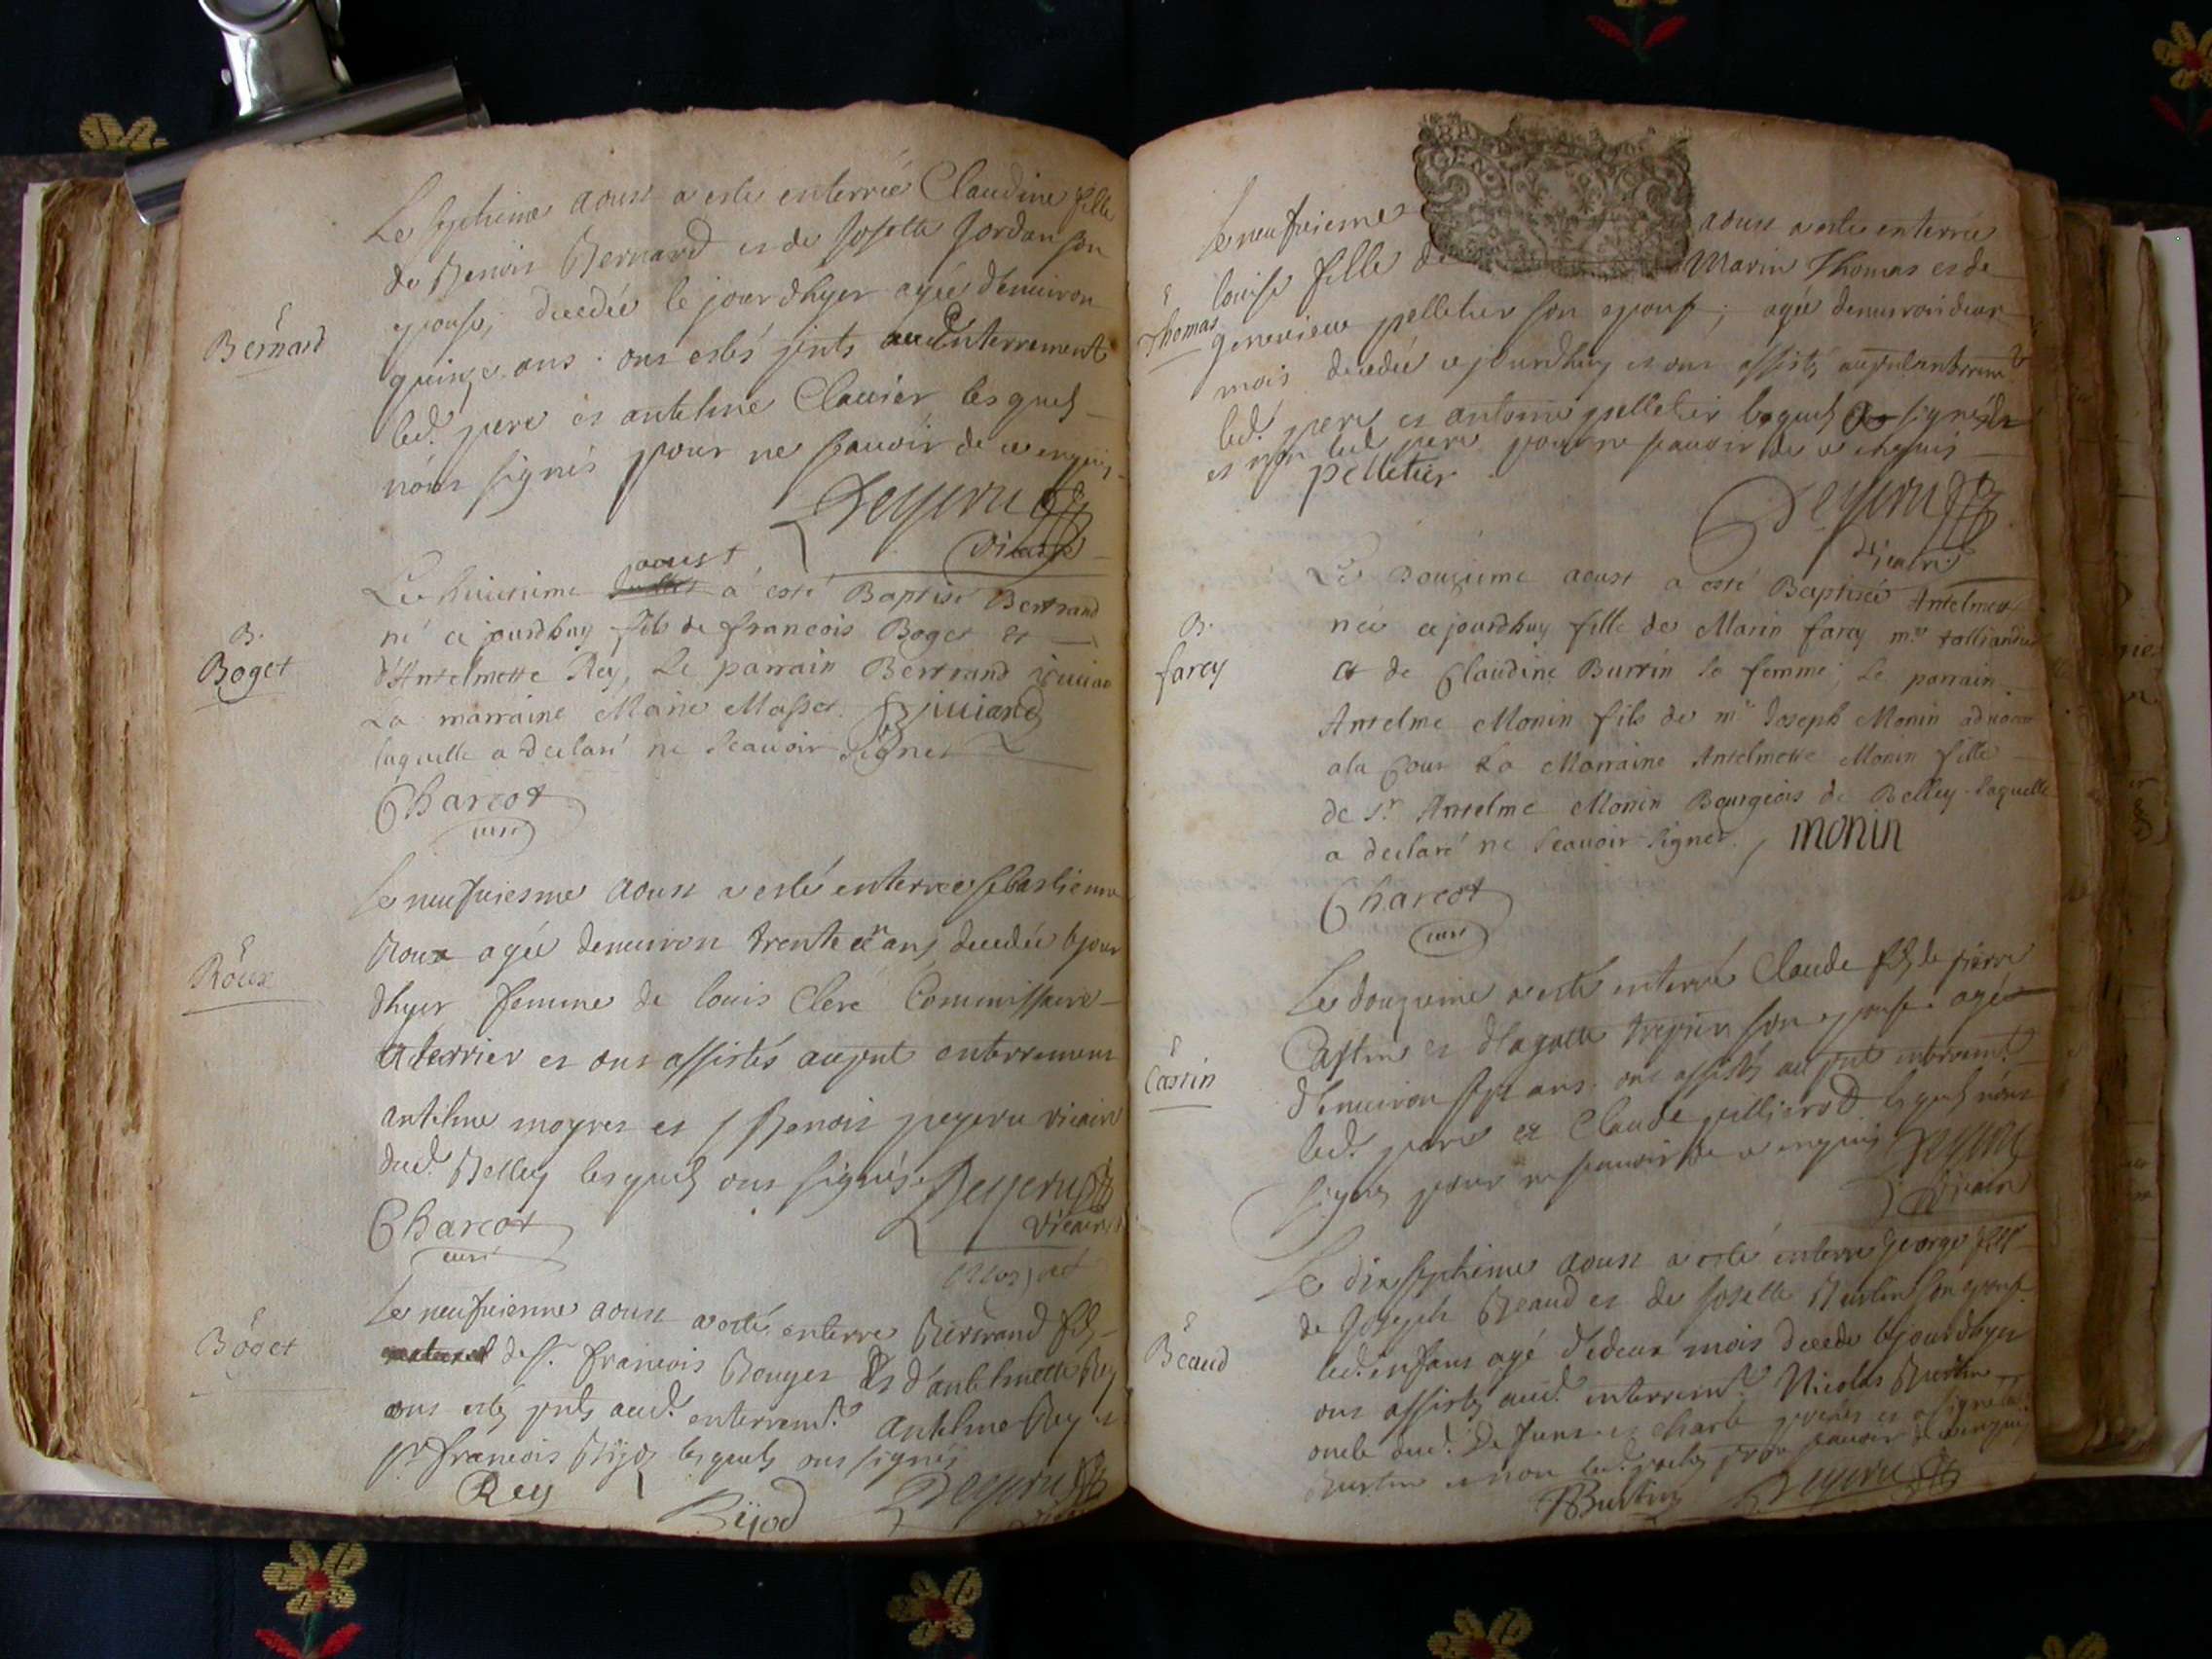 Le septieme aoust a esté enterrée Claudine fille
de Benoit Bernard et de Josette Jordan son
epouse, decedée le jour dhyer agée d'enuiron
Bernard
quinze ans ont estés pnts enterrement
led. pere et antelme Clauier lesquels
nont signés pour ne scauoir de ce enquis
Peyseru
vicaire
Le huictieme aoust a esté Baptisé Bertrand
né ce jourdhuy fils de francois Boget et
B.
Boget
d'Antelmette Rey, Le parrain Bertrand
La marraine Marie Masset.
laquelle a declaré ne scauoir signer
Charcot
curé
Le neufuiesme aoust a esté enterrée sebastienne
Roux agée denuiron trente ans decedée le jour
Roux
dhyer femme de louis Clerc Commissaire
a terrier et ont assistés au pnt enterrement
antelme moyret et Benoit peyseru vicaire
dud. Belley lesquels ont signés. Peyseru
vicaire
Charcot
curé
Le neufuieme aoust a esté enterré Bertrand fils
Boget
de sr. francois Bouget et d'antelmette Rey
ont estés pnts aud. enterremt. antelme Rey et
sr francois Bijod lesquels ont signés
Rey
Bijod
Peyseru
Le neufuieme aoust a esté enterrée
louise fille de Marin Thomas et de
Thomas
genevieue pelletier son epouse; agée denuiron deux
mois decedée ce jourdhuy et ont assistés au pnt enterremt
led. pere et antoine pelletier lequel a signé
et non led pere pour ne scauoir de ce enquis
pelletier
Peyseru
vicaire
Le Douzieme aoust a esté Baptisée Antelmette
née ce jourdhuy fille de Marin farcy mre talliandier
B.
farcy
et de Claudine Burrin sa femme; Le parrain
Antelme Monin fils de mr Joseph Monin aduocat
a la Cour La Marraine Antelmette Monin fille
de sr. Antelme Monin Bourgeois de Belley laquelle
a declaré ne scauoir signer. monin
Charcot
curé
Le douzieme a esté enterré Claude fils de pierre
Castin et d'agatte son epouse agé
Castin
d'enuiron sept ans ont assistés au pnt enterremt.
led. pere et Claude lesquels n'ont
signés pour ne scauoir de ce enquis Peyseru
vicaire
Le dix septieme aoust a esté enterré george fils
de Joseph Beaud et de Josette Burtin son epouse
Beaud
led. enfant agé de deux mois decedé le jour dhyer
ont assistés aud. enterremt. Nicolas Burtin
oncle dud. Defunt et Charle et a signé led.
Burtin et non led. pour ne scauoir de ce enquis
Burtin
Peyseru